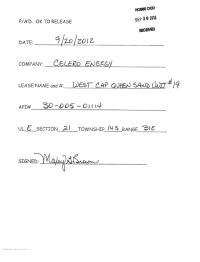 HOBBS OCD
SEP 20 2012
RECEIVED
P/A'D. OK TO RELEASE
DATE: 9/20/2012
COMPANY: CELERO ENERGY
LEASE NAME and #: WEST CAP QUEEN SAND UNIT #19
API# 30-005-01114
UL E SECTION 21 TOWNSHIP 14S RANGE 31E
SIGNED: